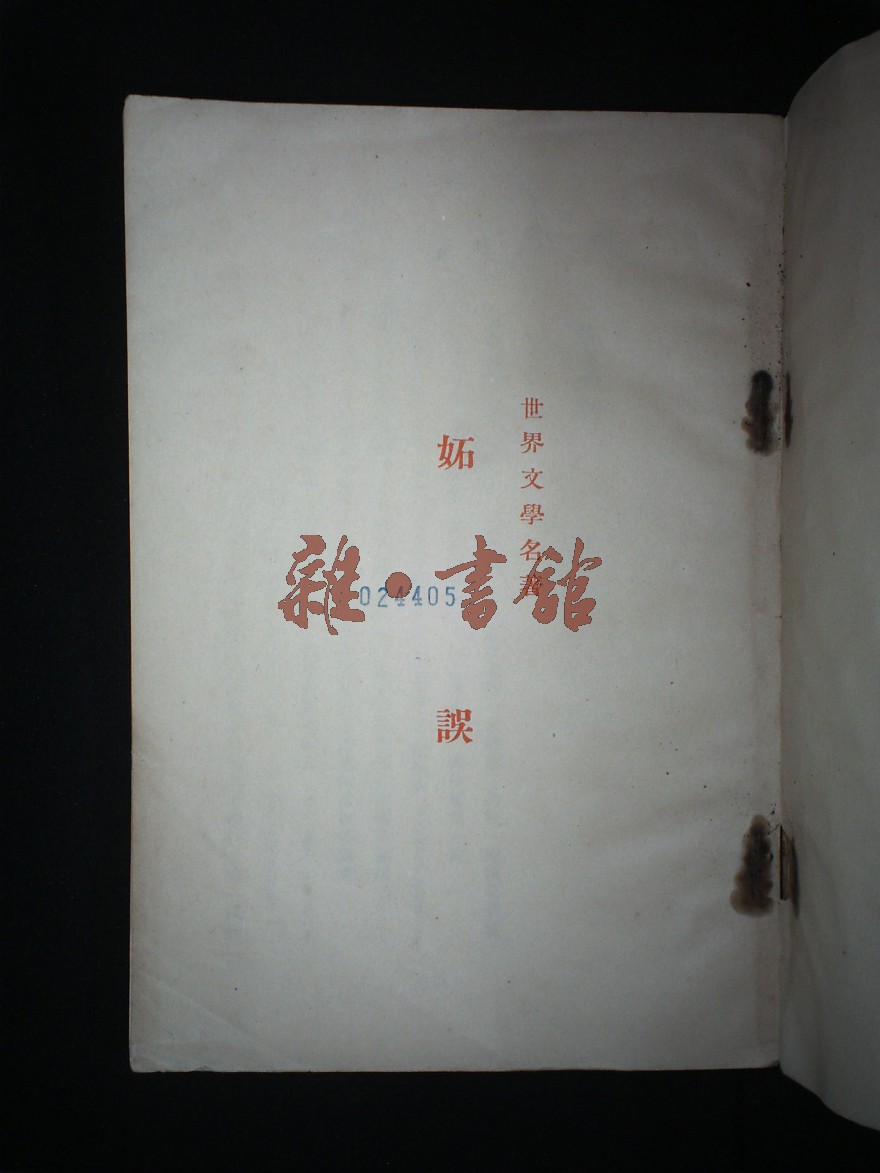 世界文學名著
妬誤
雜·書館
024405